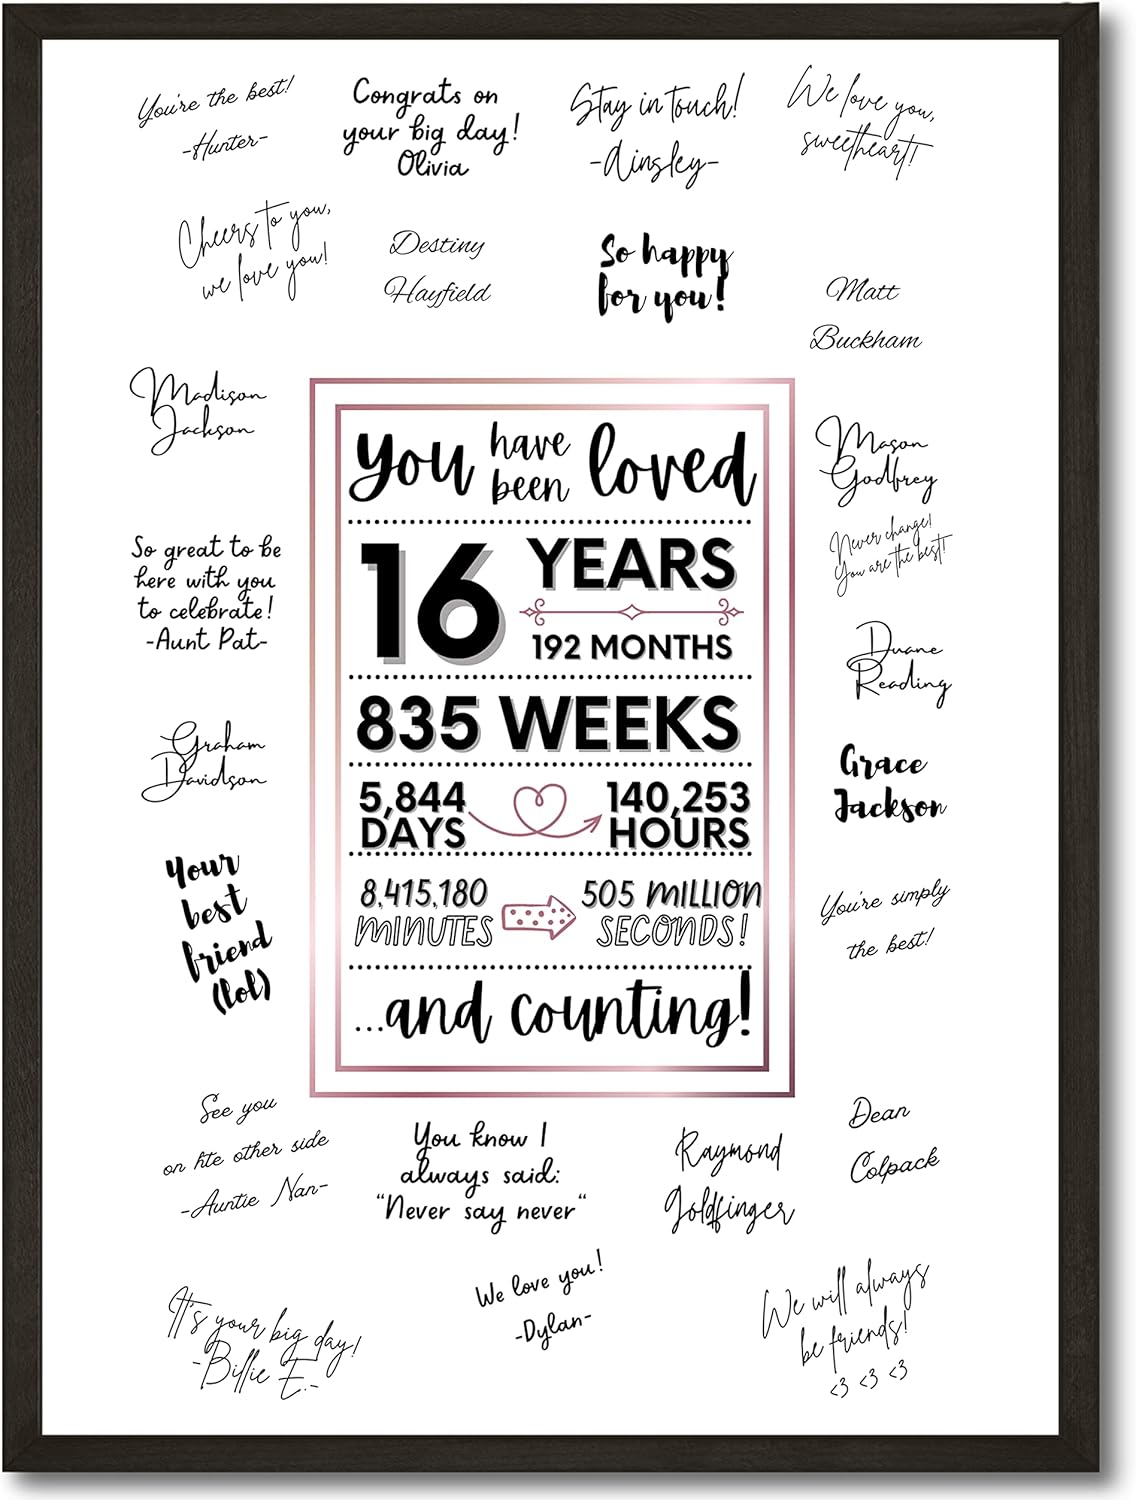 You're the best!
-Hunter-
Congrats on
your big day!
Olivia
Stay in touch!
-Ainsley-
We love you,
sweetheart!
Cheers to you,
we love you!
Destiny
Hayfield
So happy
for you!
Matt
Buckham
Madison
Jackson
Mason
Godfrey
Never change!
You are the best!
So great to be
here with you
to celebrate!
-Aunt Pat-
Duane
Reading
Graham
Davidson
Grace
Jackson
Your
best
friend
(lol)
You're simply
the best!
You have been loved
16 YEARS
192 MONTHS
835 WEEKS
5,844
DAYS
140,253
HOURS
8,415,180
MINUTES
505 MILLION
SECONDS!
...and counting!
See you
on hte other side
-Auntie Nan-
You know I
always said:
"Never say never"
Raymond
Goldfinger
Dean
Colpack
It's your big day!
-Billie E.-
We love you!
-Dylan-
We will always
be friends!
<3 <3 <3